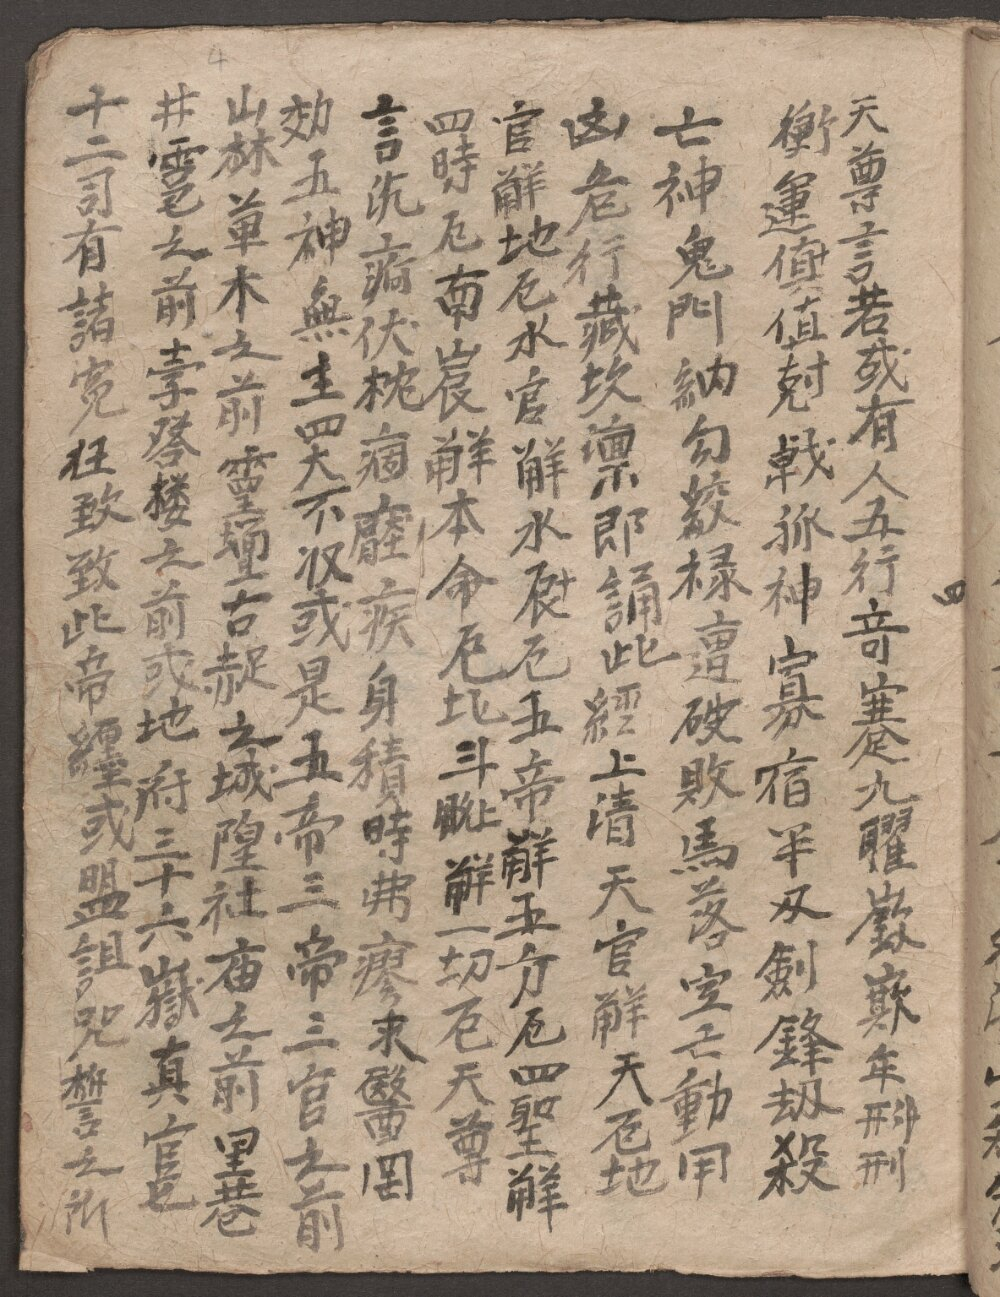 天尊言若或有人五行竒蹇九曜嶔𡾟年刑
衝運偩值尅戰孤神寡宿羊刃劍鋒劫殺
亡神鬼門納勾絞禄遭破敗馬落空亡動用
凶危行藏坎凛即誦此經上清天官觧天厄地
官觧地厄水官觧水厄五帝觧五方厄四聖觧
四時厄南宸觧本命厄北斗觧一切厄天尊
言沉疴伏枕痼𤺋疾身積時弗瘳求醫罔
効五神無主四大不収或是五帝三帝三官之前
山林草木之前靈壇古𧹞之城隍社庙之前里巷
井䨩之前寺塔楼之前或地府三十六嶽真官
十二司有諸寃枉致致此帝纏或盟詛咒誓之所
四
4